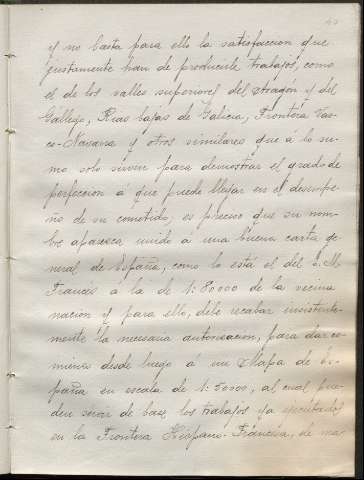 y no basta para ello la satisfaccion que
justamente han de producirle trabajos, como
el de los valles superiores del Aragón y del
Gállego, Rias bajas de Galicia, Frontera Vas-
co-Navarra y otros similares que á lo su-
mo solo sirven para demostrar el grado de
perfeccion á que puede llegar en el desempe-
ño de su cometido; es preciso que su nom-
bre aparezca unido á una buena carta ge-
neral de España, como lo está el del E. M.
Francés á la de 1:80000 de la vecina
nacion y para ello, debe recabar insistente-
mente la necesaria autorizacion, para dar co-
mienzo desde luego á un Mapa de Es-
paña en escala de 1:50000, al cual pue-
den servir de base los trabajos ya ejecutados
en la Frontera Hispano-Francesa, de ma-